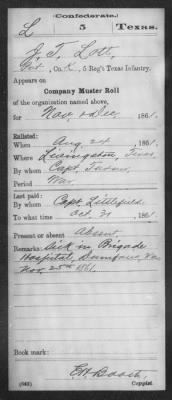 (Confederate.)
L 5 Texas.
J. T. Lott
Pvt., Co. K, 5 Reg't Texas Infantry.
Appears on
Company Muster Roll
of the organization named above,
for Nov & Dec, 1861.
Enlisted:
When Aug 24, 1861.
Where Livingston, Texas
By whom Capt. Turner
Period War
Last paid:
By whom Capt. Littlefield
To what time Oct. 31, 1861.
Present or absent Absent
Remarks: Sick in Brigade
Hospital, Dumfries, Va
Nov. 25th 1861.
Book mark:
(642) Copyist